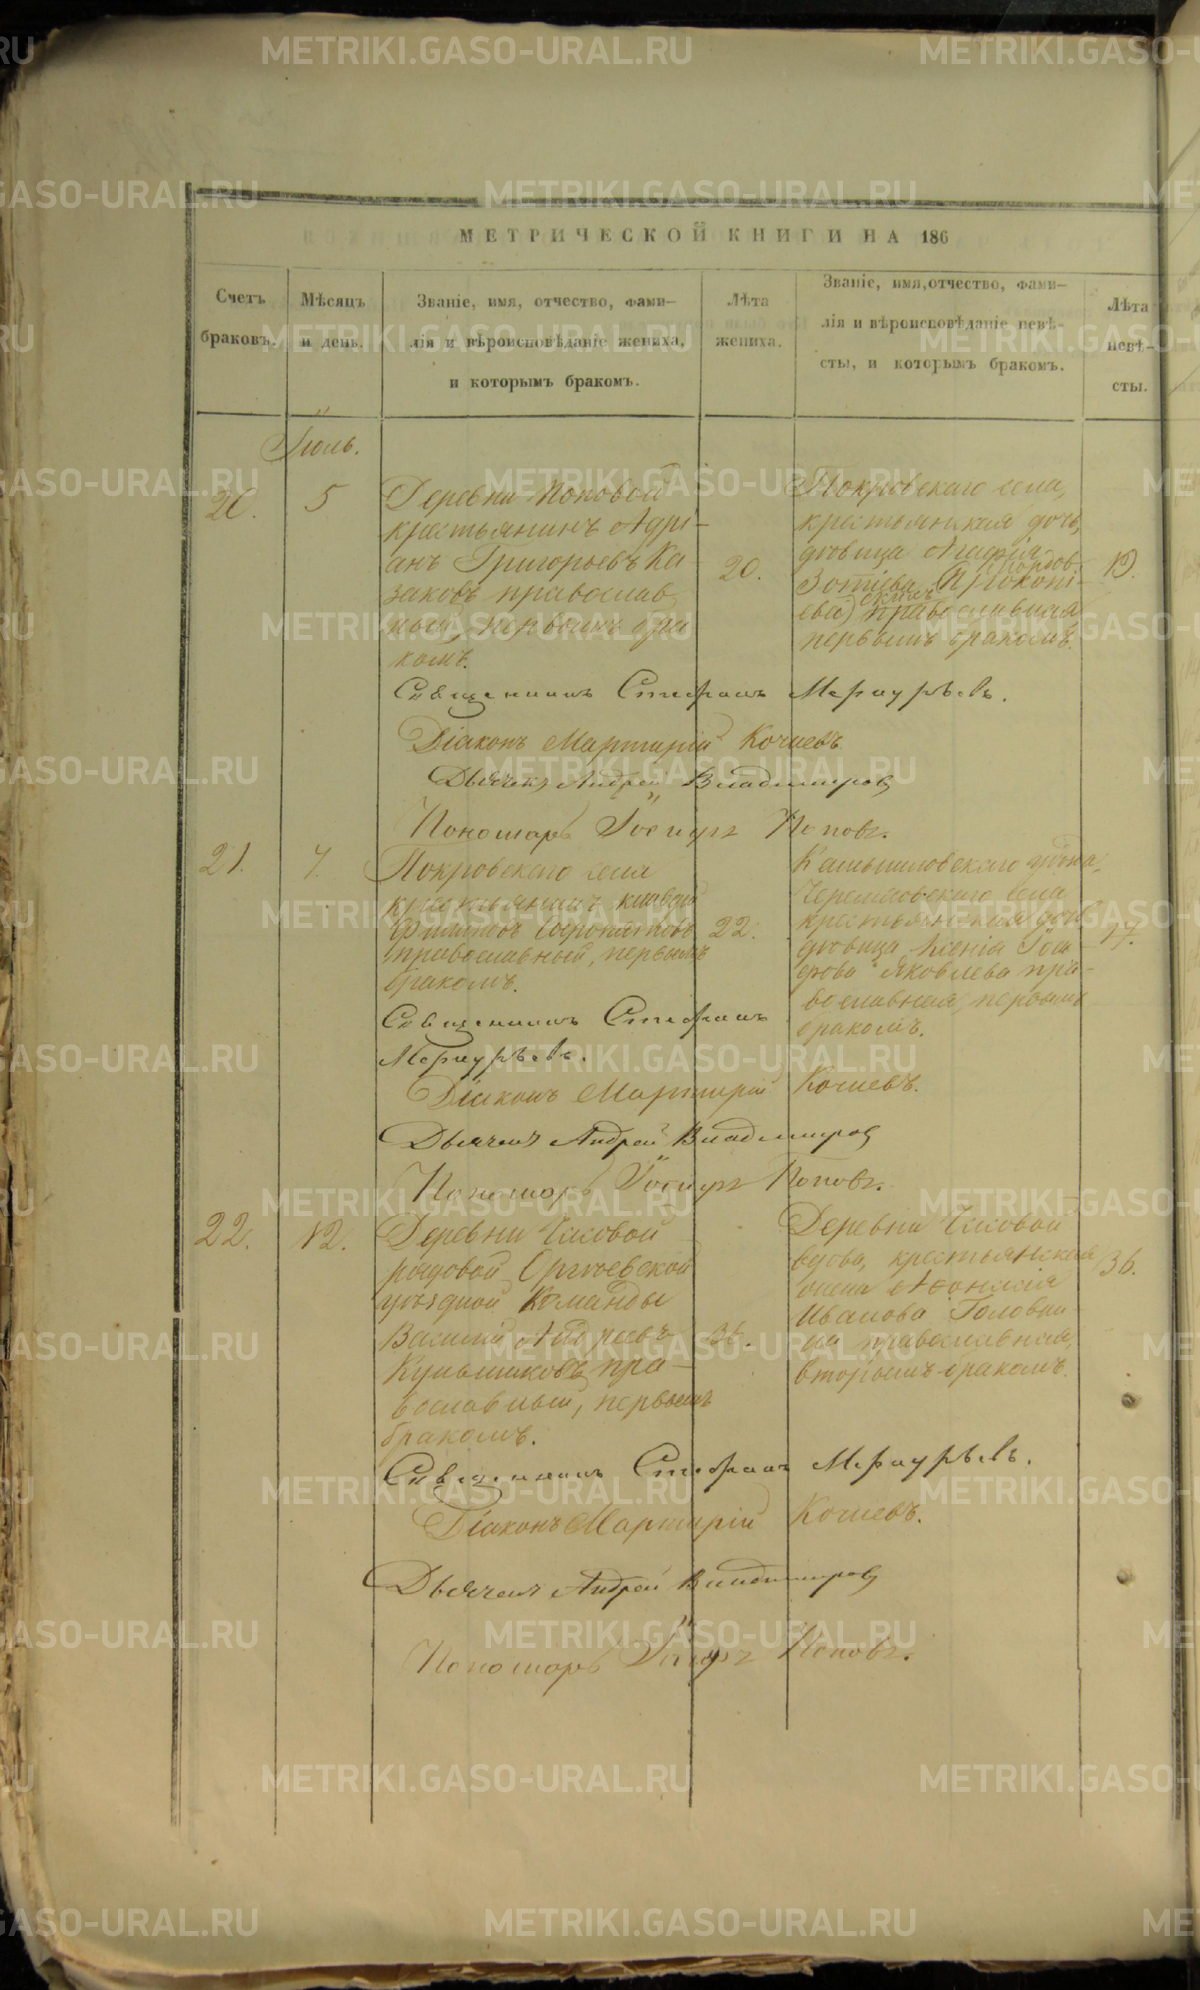 МЕТРИЧЕСКОЙ КНИГИ НА 186
Счетъ
браковъ.
Мѣсяцъ
и день.
Званіе, имя, отчество, фами-
лія и вѣроисповѣданіе жениха,
и которымъ бракомъ.
Лѣта
жениха.
Званіе, имя, отчество, фами-
лія и вѣроисповѣданіе невѣ-
сты, и которымъ бракомъ.
Лѣта
невѣ-
сты.
Іюль.
20.
5
Деревни Поповой
крестьянинъ Адрі-
анъ Григорьевъ Ка
заковъ православ
ный, первымъ бра
комъ.
20.
Покровскаго села,
крестьянская дочь,
дѣвица Агафія
Зотіева (Прокопі-
ева) православная
первымъ бракомъ.
19.
Священникъ Стефанъ Меркурьевъ.
Діаконъ Мартирій Кочневъ
Дьячекъ Андрей Владимировъ
Пономарь Іосифъ Поповъ.
21.
7.
Покровскаго села
крестьянинъ Клавдій
православный, первымъ
бракомъ.
22.
Камышловскаго уѣзда,
села
крестьянская дочь
дѣвица Ксенія
Яковлева пра-
вославная, первымъ
бракомъ.
17.
Священникъ Стефанъ
Меркурьевъ.
Діаконъ Мартирій Кочневъ.
Дьячекъ Андрей Владимировъ
Пономарь Іосифъ Поповъ.
22.
12.
Деревни Часовой
рядовой
уѣздной Команды
Василій Андреевъ
пра-
вославный, первымъ
бракомъ.
36.
Деревни Часовой
вдова, крестьянская
жена Афонасія
Иванова Головин
на православная,
вторымъ бракомъ.
36.
Священникъ Стефанъ Меркурьевъ.
Діаконъ Мартирій Кочневъ.
Дьячекъ Андрей Владимировъ
Пономарь Іосифъ Поповъ.
METRIKI.GASO-URAL.RU